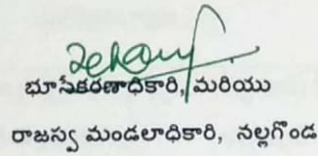 భూసేకరణాధికారి, మరియు
రాజస్వ మండలాధికారి, నల్లగొండ